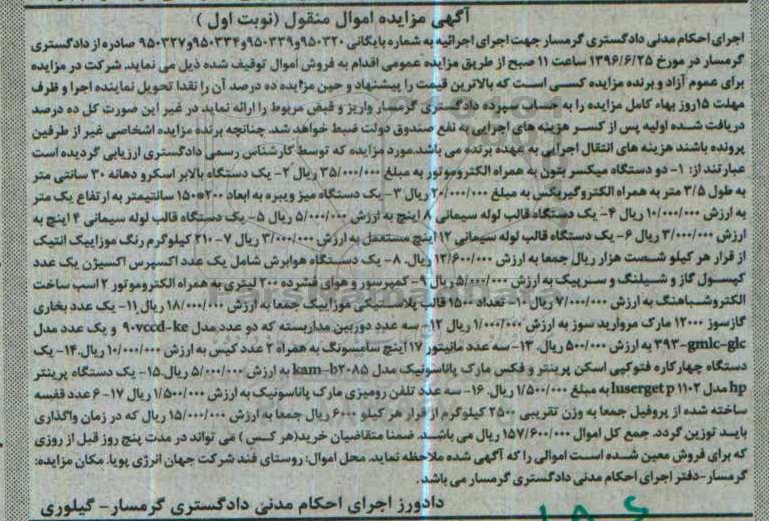 آگهی مزایده اموال منقول (نوبت اول)
اجرای احکام مدنی دادگستری گرمسار جهت اجرای اجرائیه به شماره بایگانی ۹۵۰۳۲۰و۹۵۰۳۳۹و۹۵۰۳۳۴و۹۵۰۳۲۷ صادره از دادگستری
گرمسار در مورخ ۱۳۹۶/۶/۲۵ ساعت ۱۱ صبح از طریق مزایده عمومی اقدام به فروش اموال توقیف شده ذیل می نماید. شرکت در مزایده
برای عموم آزاد و برنده مزایده کسی است که بالاترین قیمت را پیشنهاد و حین مزایده ده درصد آن را نقدا تحویل نماینده اجرا و ظرف
مهلت ۱۵روز بهاء کامل مزایده را به حساب سپرده دادگستری گرمسار واریز و قبض مربوط را ارائه نماید در غیر این صورت کل ده درصد
دریافت شده اولیه پس از کسر هزینه های اجرایی به نفع صندوق دولت ضبط خواهد شد. چنانچه برنده مزایده اشخاصی غیر از طرفین
پرونده باشند هزینه های انتقال اجرایی به عهده برنده می باشد.مورد مزایده که توسط کارشناس رسمی دادگستری ارزیابی گردیده است
عبارتند از: ۱- دو دستگاه میکسر بتون به همراه الکتروموتور به مبلغ ۳۵/۰۰۰/۰۰۰ ریال ۲- یک دستگاه بالابر اسکرو دهانه ۳۰ سانتی متر
به طول ۳/۵ متر به همراه الکتروگیربکس به مبلغ ۲۰/۰۰۰/۰۰۰ ریال ۳- یک دستگاه میز ویبره به ابعاد ۲۰۰*۱۵۰ سانتیمتر به ارتفاع یک متر
به ارزش ۱۰/۰۰۰/۰۰۰ ریال ۴- یک دستگاه قالب لوله سیمانی ۸ اینچ به ارزش ۵/۰۰۰/۰۰۰ ریال ۵- یک دستگاه قالب لوله سیمانی ۴ اینچ به
ارزش ۳/۰۰۰/۰۰۰ ریال ۶- یک دستگاه قالب لوله سیمانی ۱۲ اینچ مستعمل به ارزش ۳/۰۰۰/۰۰۰ ریال ۷- ۲۱۰ کیلوگرم رنگ موزاییک آنتیک
از قرار هر کیلو شصت هزار ریال جمعا به ارزش ۱۲/۶۰۰/۰۰۰ ریال. ۸- یک دستگاه هوابرش شامل یک عدد اکسپرس اکسیژن یک عدد
کپسول گاز و شیلنگ و سرپیک به ارزش ۵/۰۰۰/۰۰۰ ریال ۹- کمپرسور و هوای فشرده ۲۰۰ لیتری به همراه الکتروموتور ۲ اسب ساخت
الکتروشباهنگ به ارزش ۷/۰۰۰/۰۰۰ ریال ۱۰- تعداد ۱۵۰۰ قالب پلاستیکی موزاییک جمعا به ارزش ۱۸/۰۰۰/۰۰۰ ریال ۱۱- یک عدد بخاری
گازسوز ۱۲۰۰۰ مارک مروارید سوز به ارزش ۱/۰۰۰/۰۰۰ ریال ۱۲- سه عدد دوربین مداربسته که دو عدد مدل ۹۰vccd-ke و یک عدد مدل
۳۹۳-gmlc-glc به ارزش ۵۰۰/۰۰۰ ریال. ۱۳- سه عدد مانیتور ۱۷ اینچ سامسونگ به همراه ۲ عدد کیس به ارزش ۱۰/۰۰۰/۰۰۰ ریال.۱۴- یک
دستگاه چهارکاره فتوکپی اسکن پرینتر و فکس مارک پاناسونیک مدل kam-b۲۰۸۵ به ارزش ۵/۰۰۰/۰۰۰ ریال.۱۵- یک دستگاه پرینتر
hp مدل luserget p ۱۱۰۲ به مبلغ ۱/۵۰۰/۰۰۰ ریال. ۱۶- سه عدد تلفن رومیزی مارک پاناسونیک به ارزش ۱/۵۰۰/۰۰۰ ریال ۱۷- ۶ عدد قفسه
ساخته شده از پروفیل جمعا به وزن تقریبی ۲۵۰۰ کیلوگرم از قرار هر کیلو ۶۰۰۰ ریال جمعا به ارزش ۱۵/۰۰۰/۰۰۰ ریال که در زمان واگذاری
باید توزین گردد. جمع کل اموال ۱۵۷/۶۰۰/۰۰۰ ریال می باشد. ضمنا متقاضیان خرید(هر کس) می تواند در مدت پنج روز قبل از روزی
که برای فروش معین شده است اموالی را که آگهی شده ملاحظه نماید. محل اموال: روستای فند شرکت جهان انرژی پویا. مکان مزایده:
گرمسار-دفتر اجرای احکام مدنی دادگستری گرمسار می باشد.
دادورز اجرای احکام مدنی دادگستری گرمسار- گیلوری